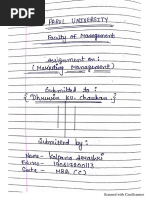 PARUL UNIVERSITY
Faculty of Management
Assignment on:
( Marketing Management )
Submitted to :
{ Dhruvin Ku. Chauhan }
Submitted by :
Name:- Kalpana
MBA (C)
Scanned with CamScanner